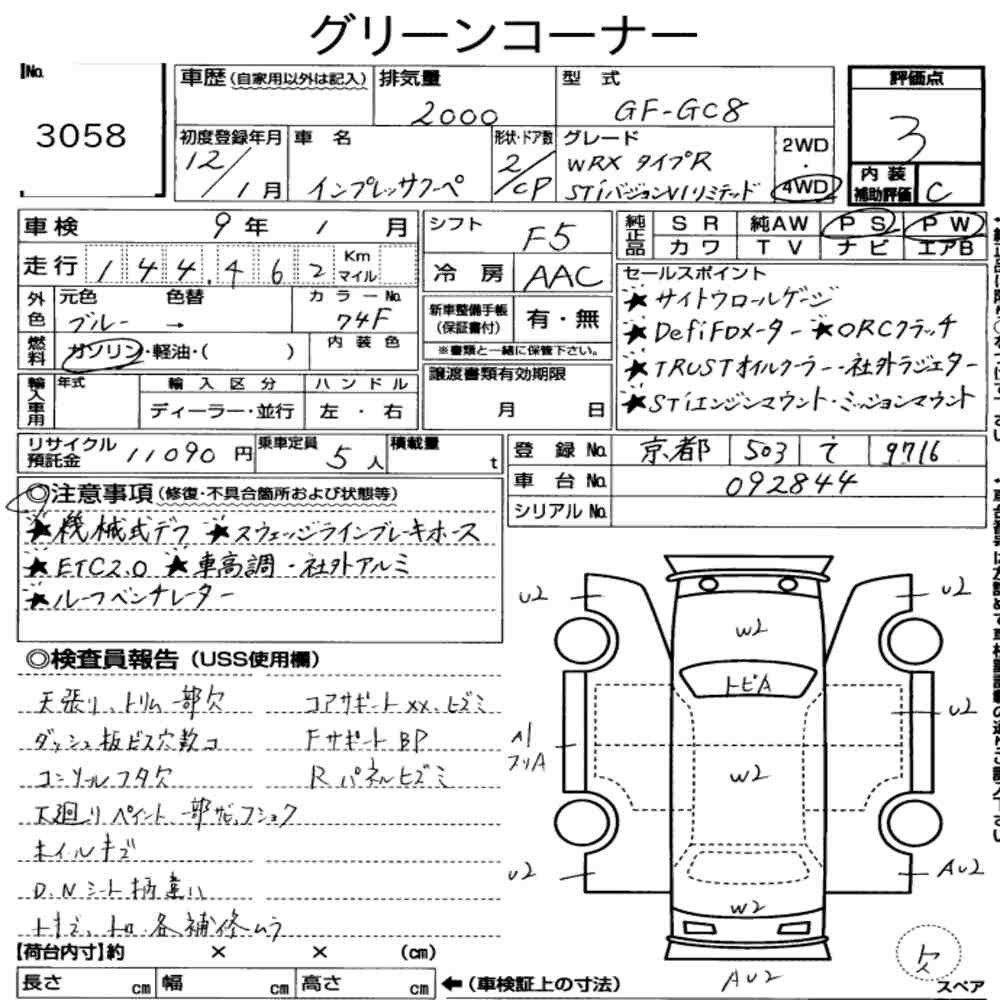 グリーンコーナー
No.
3058
車歴 (自家用以外は記入)
排気量
2000
型式
GF-GC8
評価点
3
内装補助評価
C
初度登録年月
12/1月
車名
インプレッサクーペ
形状・ドア数
2/CP
グレード
WRX タイプR
STiバージョンVIリミテッド
2WD
・
4WD
車検 9年 1月
シフト
F5
純正品
SR 純AW PS PW
カワ TV ナビ エアB
走行 144,462 Km マイル
冷房 AAC
セールスポイント
★サイトウロールゲージ
★DefiFDメーター ★ORCクラッチ
★TRUSTオイルクーラー・社外ラジエター
★STiエンジンマウント・ミッションマウント
外色
元色 色替
ブルー →
カラーNo.
74F
新車整備手帳
(保証書付)
有・無
※書類と一緒に保管下さい。
燃料
ガソリン・軽油・( )
内装色
輸入車用
年式
輸入区分
ディーラー・並行
ハンドル
左・右
譲渡書類有効期限
月 日
リサイクル預託金 11090円
乗車定員 5人
積載量 t
登録No. 京都 503 て 9716
車台No. 092844
シリアルNo.
◎注意事項 (修復・不具合箇所および状態等)
★機械式デフ ★スウェッジラインブレーキホース
★ETC2.0 ★車高調・社外アルミ
★ルーフベンチレーター
◎検査員報告 (USS使用欄)
天張り、トリム一部欠
ダッシュ板ビス穴数コ
コンソールフタ欠
下廻りペイント、一部サビ、フショク
ホイルキズ
D.Nシート柄違い
各補修ムラ
コアサポートXX、ヒズミ
FサポートBP
Rパネルヒズミ
U2
U2
W2
トビA
U2
W2
U2
AU2
W2
AU2
欠
スペア
【荷台内寸】約 × × (cm)
長さ cm 幅 cm 高さ cm ←(車検証上の寸法)